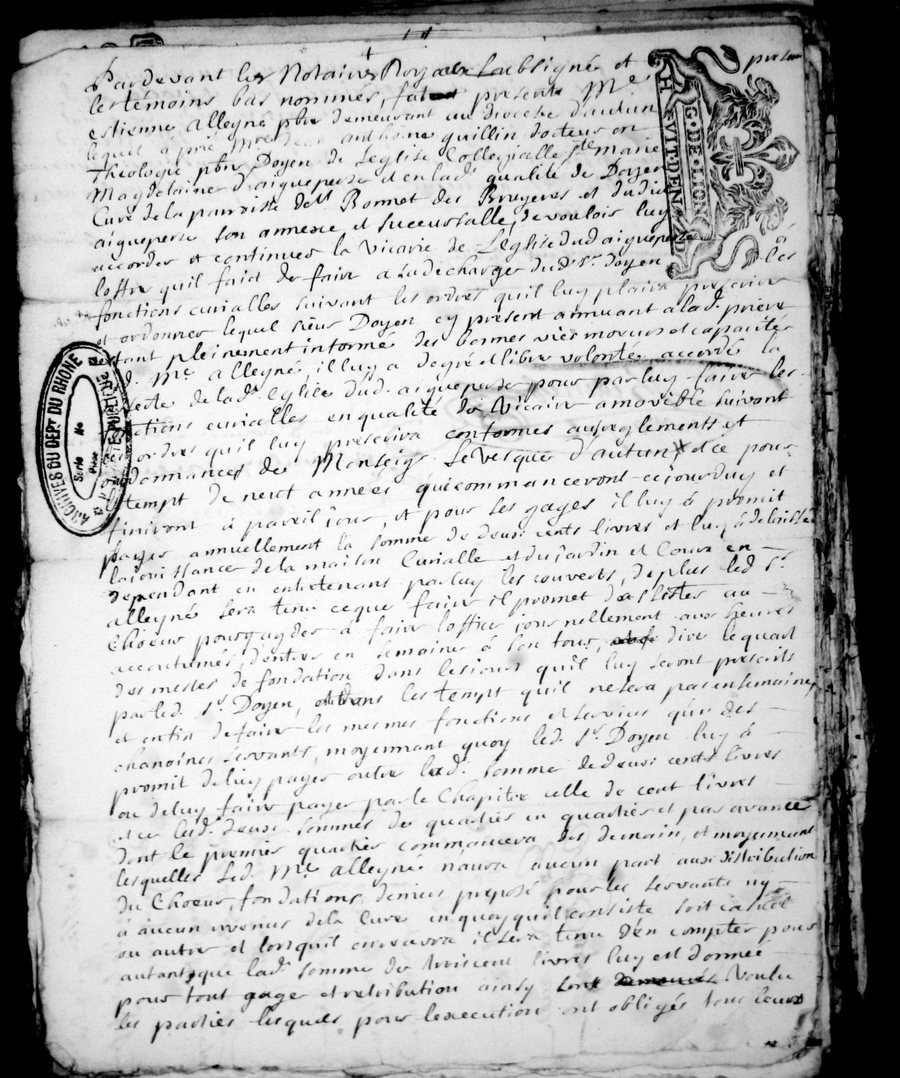 Pardevant les Notaires Royaux soubsigné et
les témoins bas nommés, fut present Me
estienne alleyné pbre demeurant au dioceze d'autun
lequel a prié Mre Jean anthoine guillin docteur en
Theologie pbre Doyen de Leglise Collegialle Ste Marie
Magdelaine d'aigueperse et en lad. qualité de Doyen
Curé de la parroisse de St Bonnet des Bruyeres et dudit
aigueperse son annexe et succursalle, de vouloir luy
accorder et continuer la Vicairie de Leglise dud aigueperse
loffre quil faict de faire a la decharge dud. Sr. Doyen les
fonctions curialles suivant les ordres quil luy plaira prescrire
et ordonner lequel sieur Doyen cy present annuant a lad. priere
estant pleinement informé des bonnes vies moeurs et capacités
d. Me alleyné, il luy a de gré et libre volonté accordé la
de lad. Eglise dud. aigueperse pour par luy faire les
fonctions curialles en qualité de Vicaire amovible suivant
ordres quil luy prescrira conformes aux reglements et
ordonnances de Monseigr Levesque d'autun et ce pour
tempt de neuf années qui commanceront cejourduy et
finiront à pareil jour, et pour ses gages il luy à promit
payer annuellement la somme de deux cents livres et luy à delaissé
la jouissance de la maison Curialle et du jardin et Cour en
dependant en entretenant par luy les couverts, de plus led Sr.
alleyné sera tenu ce que faire il promet d'assister au
Choeur pour ayder à faire loffice journellement aux heures
accoutumés, d'entrer en semaine à son tour, dire le quart
des messes de fondation dans les jours quil luy seront prescrits
par led. Sr. Doyen, dans les tempt quil ne sera pas en semaine
et enfin de faire les mesmes fonctions et services que des
chanoines servants, moyennant quoy led. Sr. Doyen luy à
promit de luy payer outre lad. somme de deux cents livres
ou de luy faire payer par le Chapitre celle de cent livres
et ce lesd. deux sommes de quartier en quartier et par avance
dont le premier quartier commancera des demain, et moyennant
lesquelles led. Me alleyné naura aucun part aux distribution
du Choeur, fondations, deniers preposé pour les servants ny
à aucun revenus de la Cure en quoy quil consiste soit casuel
ou autre et lorsquil en recevra il sera tenu d'en compter pour
autant que lad. somme de trois cent livres luy est donnée
pour tout gage et retribution ainsy voulu
les parties lesquels pour lexecution ont obligés tous leurs
G. DE LION
ARCHIVES DU DEPT DU RHONE
Serie No
Piece